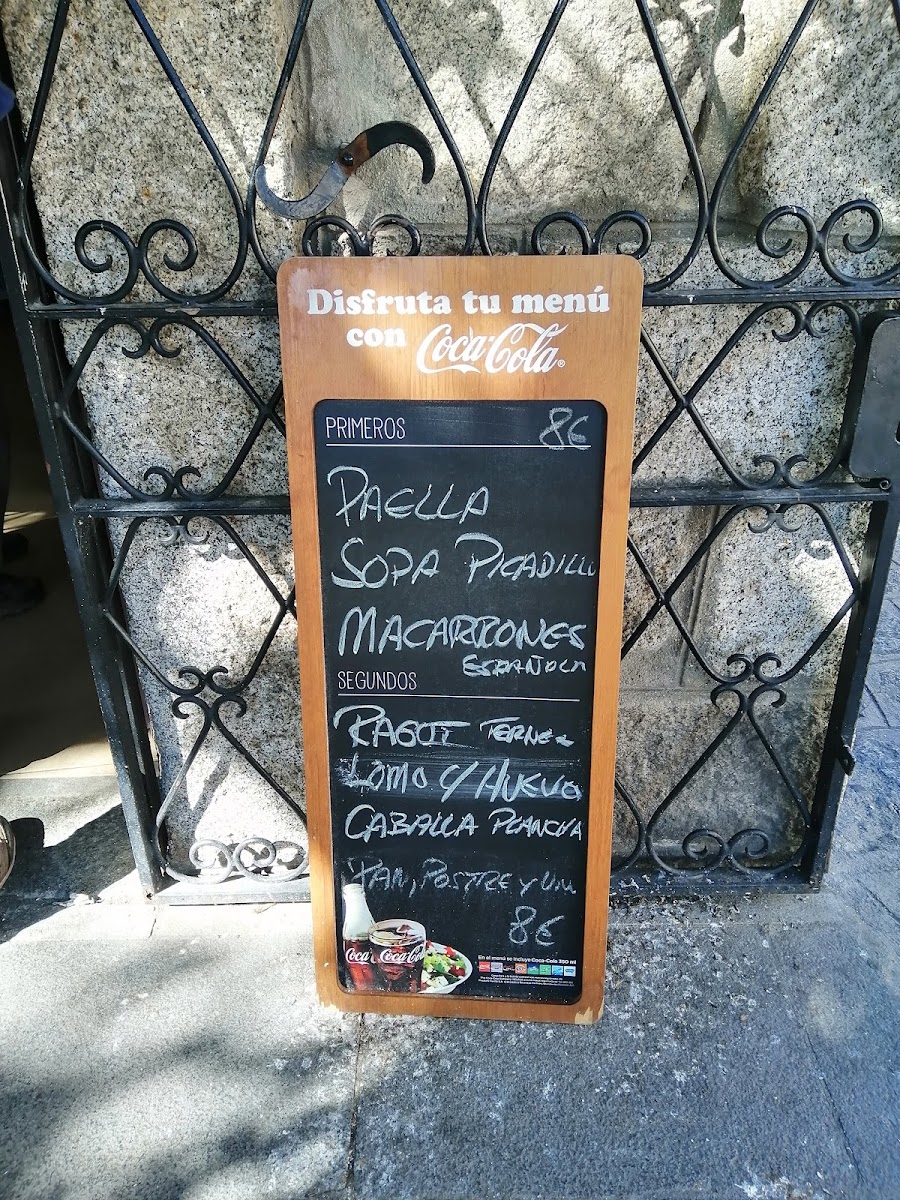 Disfruta tu menú
con Coca-Cola®
PRIMEROS 8€
PAELLA
SOPA PICADILLO
MACARRONES
ESPAÑOLA
SEGUNDOS
RAGOT
LOMO C/ HUEVO
CABALLA PLANCHA
PAN, POSTRE Y
8€
Coca Coca-Cola
En el menú se incluye Coca-Cola 350 ml